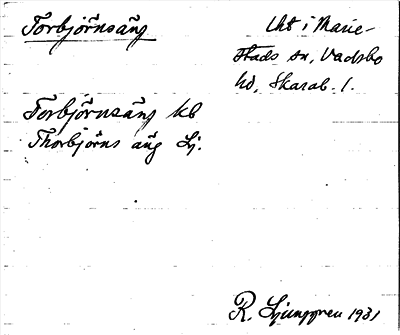 Torbjörnsäng
Uht i Marie-
stads sn, Vadsbo
hd, Skarab. l.
Torbjörnsäng kb
Thorbjörns äng Lj.
R. Ljunggren 1931